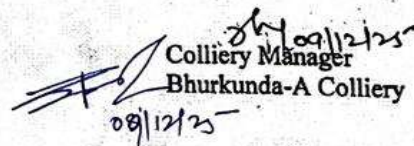 09/12/25
Colliery Manager
Bhurkunda-A Colliery
09/12/25